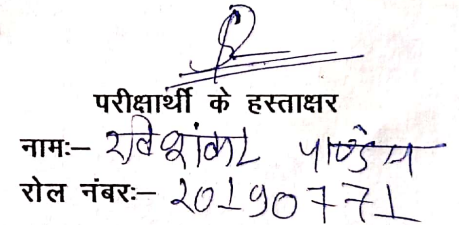 परीक्षार्थी के हस्ताक्षर
नामः- रविशंकर पाण्डेय
रोल नंबरः- 20190771